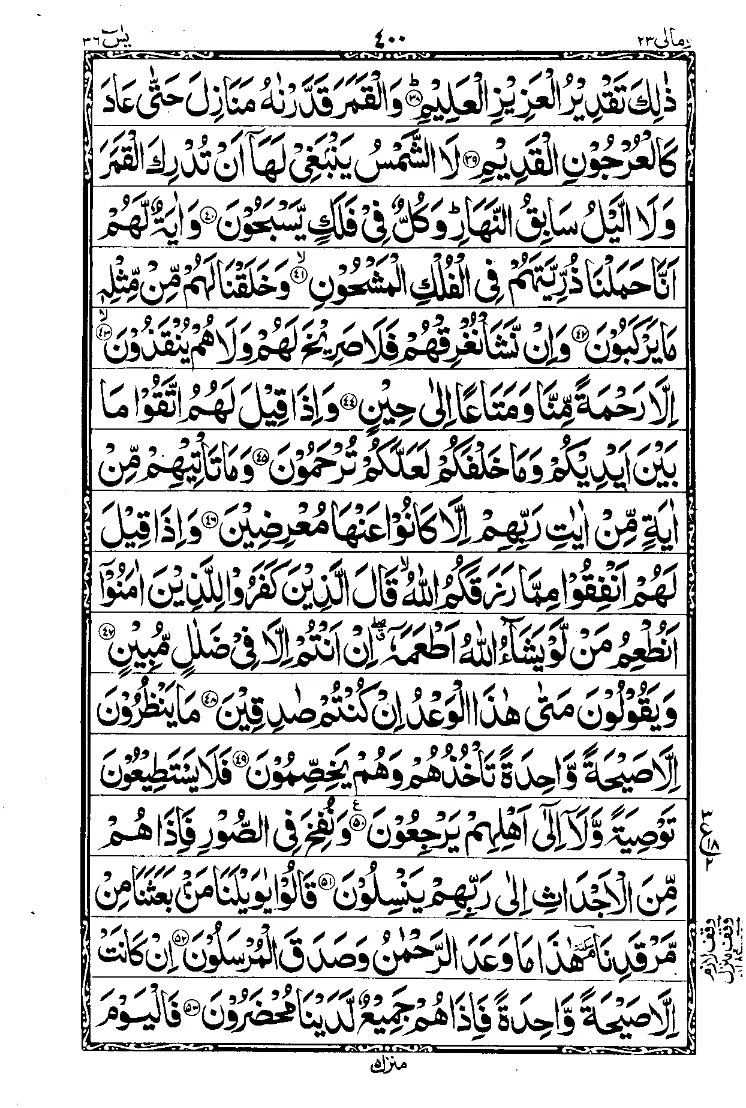 ومالی ٢٣ ٤٠٠ یٰسٓ ٣٦
ذٰلِكَ تَقْدِيْرُ الْعَزِيْزِ الْعَلِيْمِؕ ۝٣٨ وَالْقَمَرَ قَدَّرْنٰهُ مَنَازِلَ حَتّٰى عَادَ
كَالْعُرْجُوْنِ الْقَدِيْمِ ۝٣٩ لَا الشَّمْسُ يَنْۢبَغِىْ لَهَاۤ اَنْ تُدْرِكَ الْقَمَرَ
وَلَا الَّيْلُ سَابِقُ النَّهَارِؕ وَكُلٌّ فِىْ فَلَكٍ يَّسْبَحُوْنَ ۝٤٠ وَاٰيَةٌ لَّهُمْ
اَنَّا حَمَلْنَا ذُرِّيَّتَهُمْ فِى الْفُلْكِ الْمَشْحُوْنِۙ ۝٤١ وَخَلَقْنَا لَهُمْ مِّنْ مِّثْلِهٖ
مَا يَرْكَبُوْنَ ۝٤٢ وَاِنْ نَّشَاْ نُغْرِقْهُمْ فَلَا صَرِيْخَ لَهُمْ وَلَا هُمْ يُنْقَذُوْنَۙ ۝٤٣
اِلَّا رَحْمَةً مِّنَّا وَمَتَاعًا اِلٰى حِيْنٍ ۝٤٤ وَاِذَا قِيْلَ لَهُمُ اتَّقُوْا مَا
بَيْنَ اَيْدِيْكُمْ وَمَا خَلْفَكُمْ لَعَلَّكُمْ تُرْحَمُوْنَ ۝٤٥ وَمَا تَاْتِيْهِمْ مِّنْ
اٰيَةٍ مِّنْ اٰيٰتِ رَبِّهِمْ اِلَّا كَانُوْا عَنْهَا مُعْرِضِيْنَ ۝٤٦ وَاِذَا قِيْلَ
لَهُمْ اَنْفِقُوْا مِمَّا رَزَقَكُمُ اللّٰهُۙ قَالَ الَّذِيْنَ كَفَرُوْا لِلَّذِيْنَ اٰمَنُوْۤا
اَنُطْعِمُ مَنْ لَّوْ يَشَآءُ اللّٰهُ اَطْعَمَهٗۤ ۖ اِنْ اَنْتُمْ اِلَّا فِىْ ضَلٰلٍ مُّبِيْنٍ ۝٤٧
وَيَقُوْلُوْنَ مَتٰى هٰذَا الْوَعْدُ اِنْ كُنْتُمْ صٰدِقِيْنَ ۝٤٨ مَا يَنْظُرُوْنَ
اِلَّا صَيْحَةً وَّاحِدَةً تَاْخُذُهُمْ وَهُمْ يَخِصِّمُوْنَ ۝٤٩ فَلَا يَسْتَطِيْعُوْنَ
تَوْصِيَةً وَّلَاۤ اِلٰٓى اَهْلِهِمْ يَرْجِعُوْنَ ۝٥٠ ع وَنُفِخَ فِى الصُّوْرِ فَاِذَا هُمْ
مِّنَ الْاَجْدَاثِ اِلٰى رَبِّهِمْ يَنْسِلُوْنَ ۝٥١ قَالُوْا يٰوَيْلَنَا مَنْۢ بَعَثَنَا مِنْ
مَّرْقَدِنَاۘ هٰذَا مَا وَعَدَ الرَّحْمٰنُ وَصَدَقَ الْمُرْسَلُوْنَ ۝٥٢ اِنْ كَانَتْ
اِلَّا صَيْحَةً وَّاحِدَةً فَاِذَا هُمْ جَمِيْعٌ لَّدَيْنَا مُحْضَرُوْنَ ۝٥٣ فَالْيَوْمَ
منزل ٥